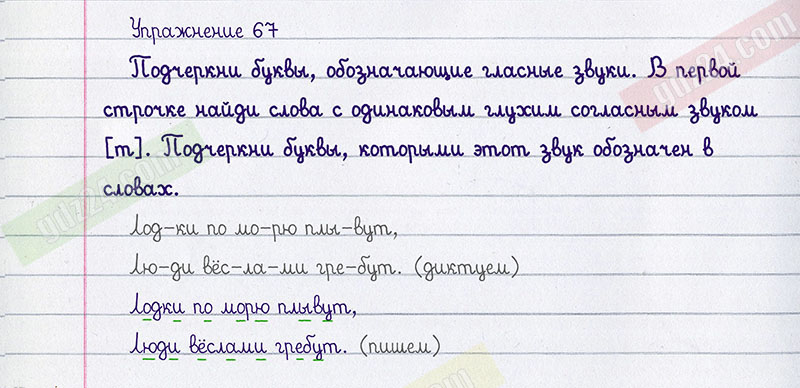 Упражнение 67
Подчеркни буквы, обозначающие гласные звуки. В первой
строчке найди слова с одинаковым глухим согласным звуком
[т]. Подчеркни буквы, которыми этот звук обозначен в
словах.
Лод-ки по мо-рю плы-вут,
Лю-ди вёс-ла-ми гре-бут. (диктуем)
Лодки по морю плывут,
Люди вёслами гребут. (пишем)
gdz24.com
gdz24.com